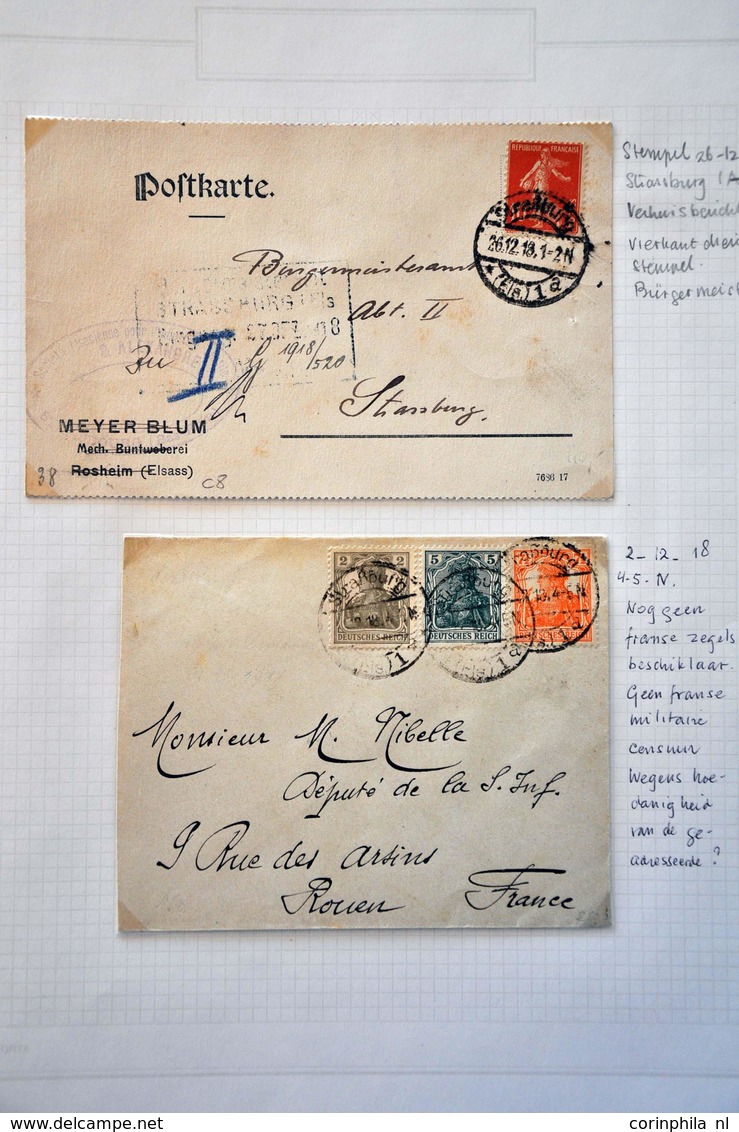 Postkarte.
REPUBLIQUE FRANÇAISE
Straßburg
26.12.18.1-2N
* (Els) 1 a
Bürgermeisteramt
Abt. II
STRASSBURG i Els
27.DEZ.1918
Zu II 1918/520
Strassburg.
MEYER BLUM
Mech. Buntweberei
Rosheim (Elsass)
38
C8
7686 17
Stempel 26-12
Strassburg 1A
Verhuisbericht
vierkant
stempel
Bürgermeist
2 5
DEUTSCHES REICH DEUTSCHES REICH
Straßburg
Monsieur M. Nibelle
Député de la S. Inf.
9 Rue des Arsins
Rouen France
2-12-18
4-5-N.
Nog geen
franse zegels
beschikbaar.
Geen franse
militaire
censuur
wegens hoe-
danigheid
van de ge-
adresseerde?
Bid at www.corinphila.nl
corinphila nl